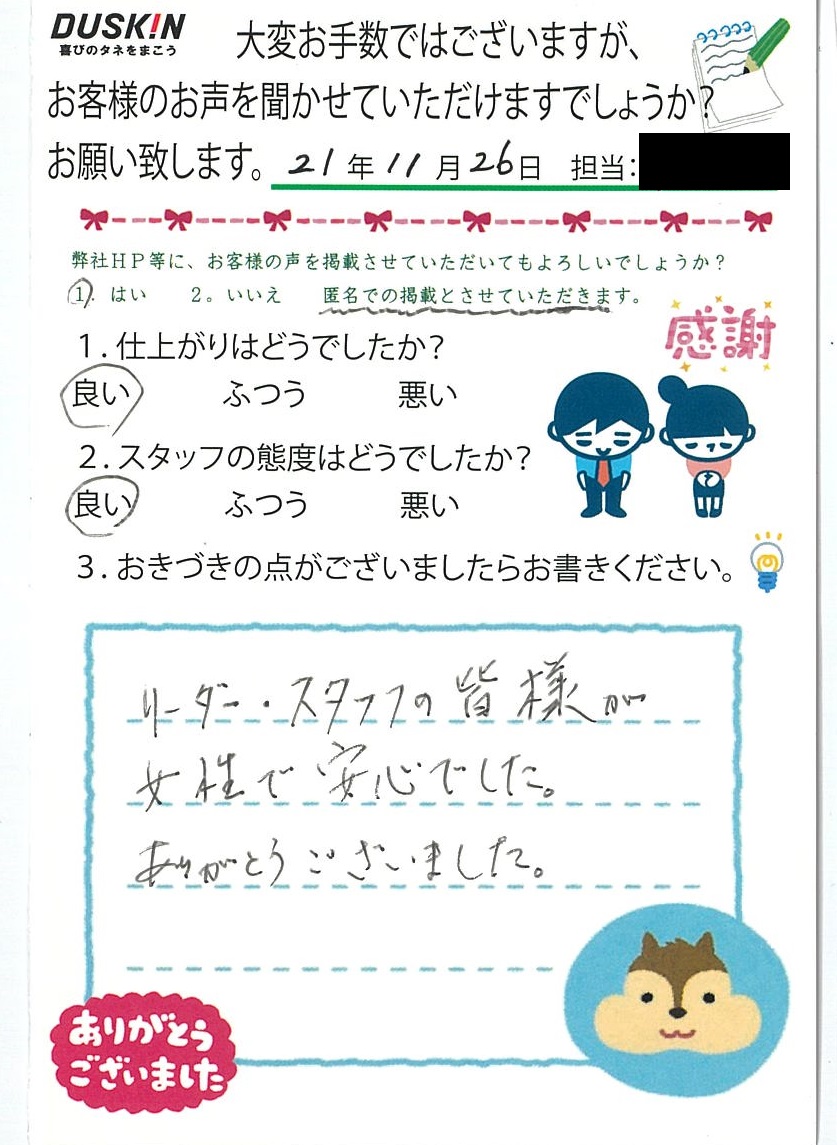 DUSK!N
喜びのタネをまこう
大変お手数ではございますが、
お客様のお声を聞かせていただけますでしょうか?
お願い致します。 21年11月26日 担当:
弊社HP等に、お客様の声を掲載させていただいてもよろしいでしょうか?
1. はい 2。いいえ 匿名での掲載とさせていただきます。
感謝
1.仕上がりはどうでしたか?
良い ふつう 悪い
2.スタッフの態度はどうでしたか?
良い ふつう 悪い
3.おきづきの点がございましたらお書きください。
リーダー・スタッフの皆様が
女性で安心でした。
ありがとうございました。
ありがとう
ございました